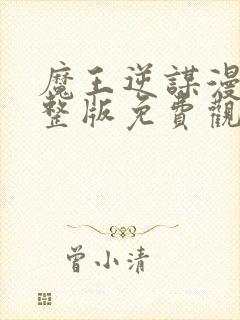 魔王逆謀漫
整版免費觀
曾小清